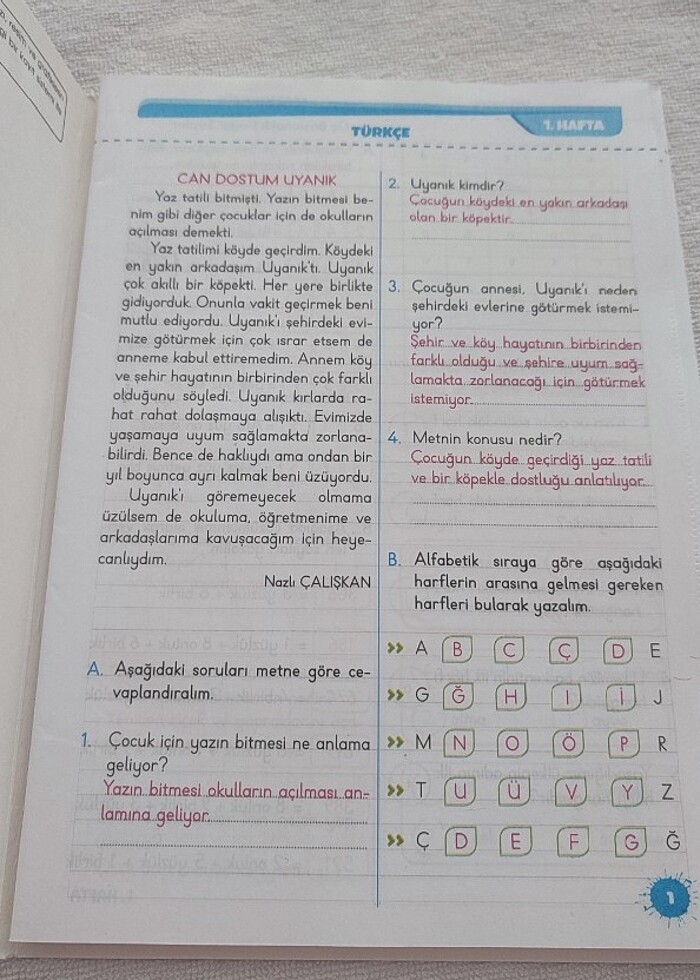 TÜRKÇE
1. HAFTA
CAN DOSTUM UYANIK
Yaz tatili bitmişti. Yazın bitmesi be-
nim gibi diğer çocuklar için de okulların
açılması demekti.
Yaz tatilimi köyde geçirdim. Köydeki
en yakın arkadaşım Uyanık'tı. Uyanık
çok akıllı bir köpekti. Her yere birlikte
gidiyorduk. Onunla vakit geçirmek beni
mutlu ediyordu. Uyanık'ı şehirdeki evi-
mize götürmek için çok ısrar etsem de
anneme kabul ettiremedim. Annem köy
ve şehir hayatının birbirinden çok farklı
olduğunu söyledi. Uyanık kırlarda ra-
hat rahat dolaşmaya alışıktı. Evimizde
yaşamaya uyum sağlamakta zorlana-
bilirdi. Bence de haklıydı ama ondan bir
yıl boyunca ayrı kalmak beni üzüyordu.
Uyanık'ı göremeyecek olmama
üzülsem de okuluma, öğretmenime ve
arkadaşlarıma kavuşacağım için heye-
canlıydım.
Nazlı ÇALIŞKAN
A. Aşağıdaki soruları metne göre ce-
vaplandıralım.
1. Çocuk için yazın bitmesi ne anlama
geliyor?
Yazın bitmesi okulların açılması an-
lamına geliyor.
2. Uyanık kimdir?
Çocuğun köydeki en yakın arkadaşı
olan bir köpektir.
3. Çocuğun annesi, Uyanık'ı neden
şehirdeki evlerine götürmek istemi-
yor?
Şehir ve köy hayatının birbirinden
farklı olduğu ve şehire uyum sağ-
lamakta zorlanacağı için götürmek
istemiyor.
4. Metnin konusu nedir?
Çocuğun köyde geçirdiği yaz tatili
ve bir köpekle dostluğu anlatılıyor.
B. Alfabetik sıraya göre aşağıdaki
harflerin arasına gelmesi gereken
harfleri bularak yazalım.
>> A B C Ç D E
>> G Ğ H I İ J
>> M N O Ö P R
>> T U Ü V Y Z
>> Ç D E F G Ğ
1